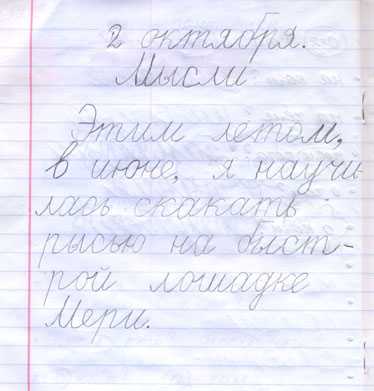 2 октября.
Мысли
Этим летом,
в июне, я научи
лась скакать
рысью на быст-
рой лошадке
Мери.